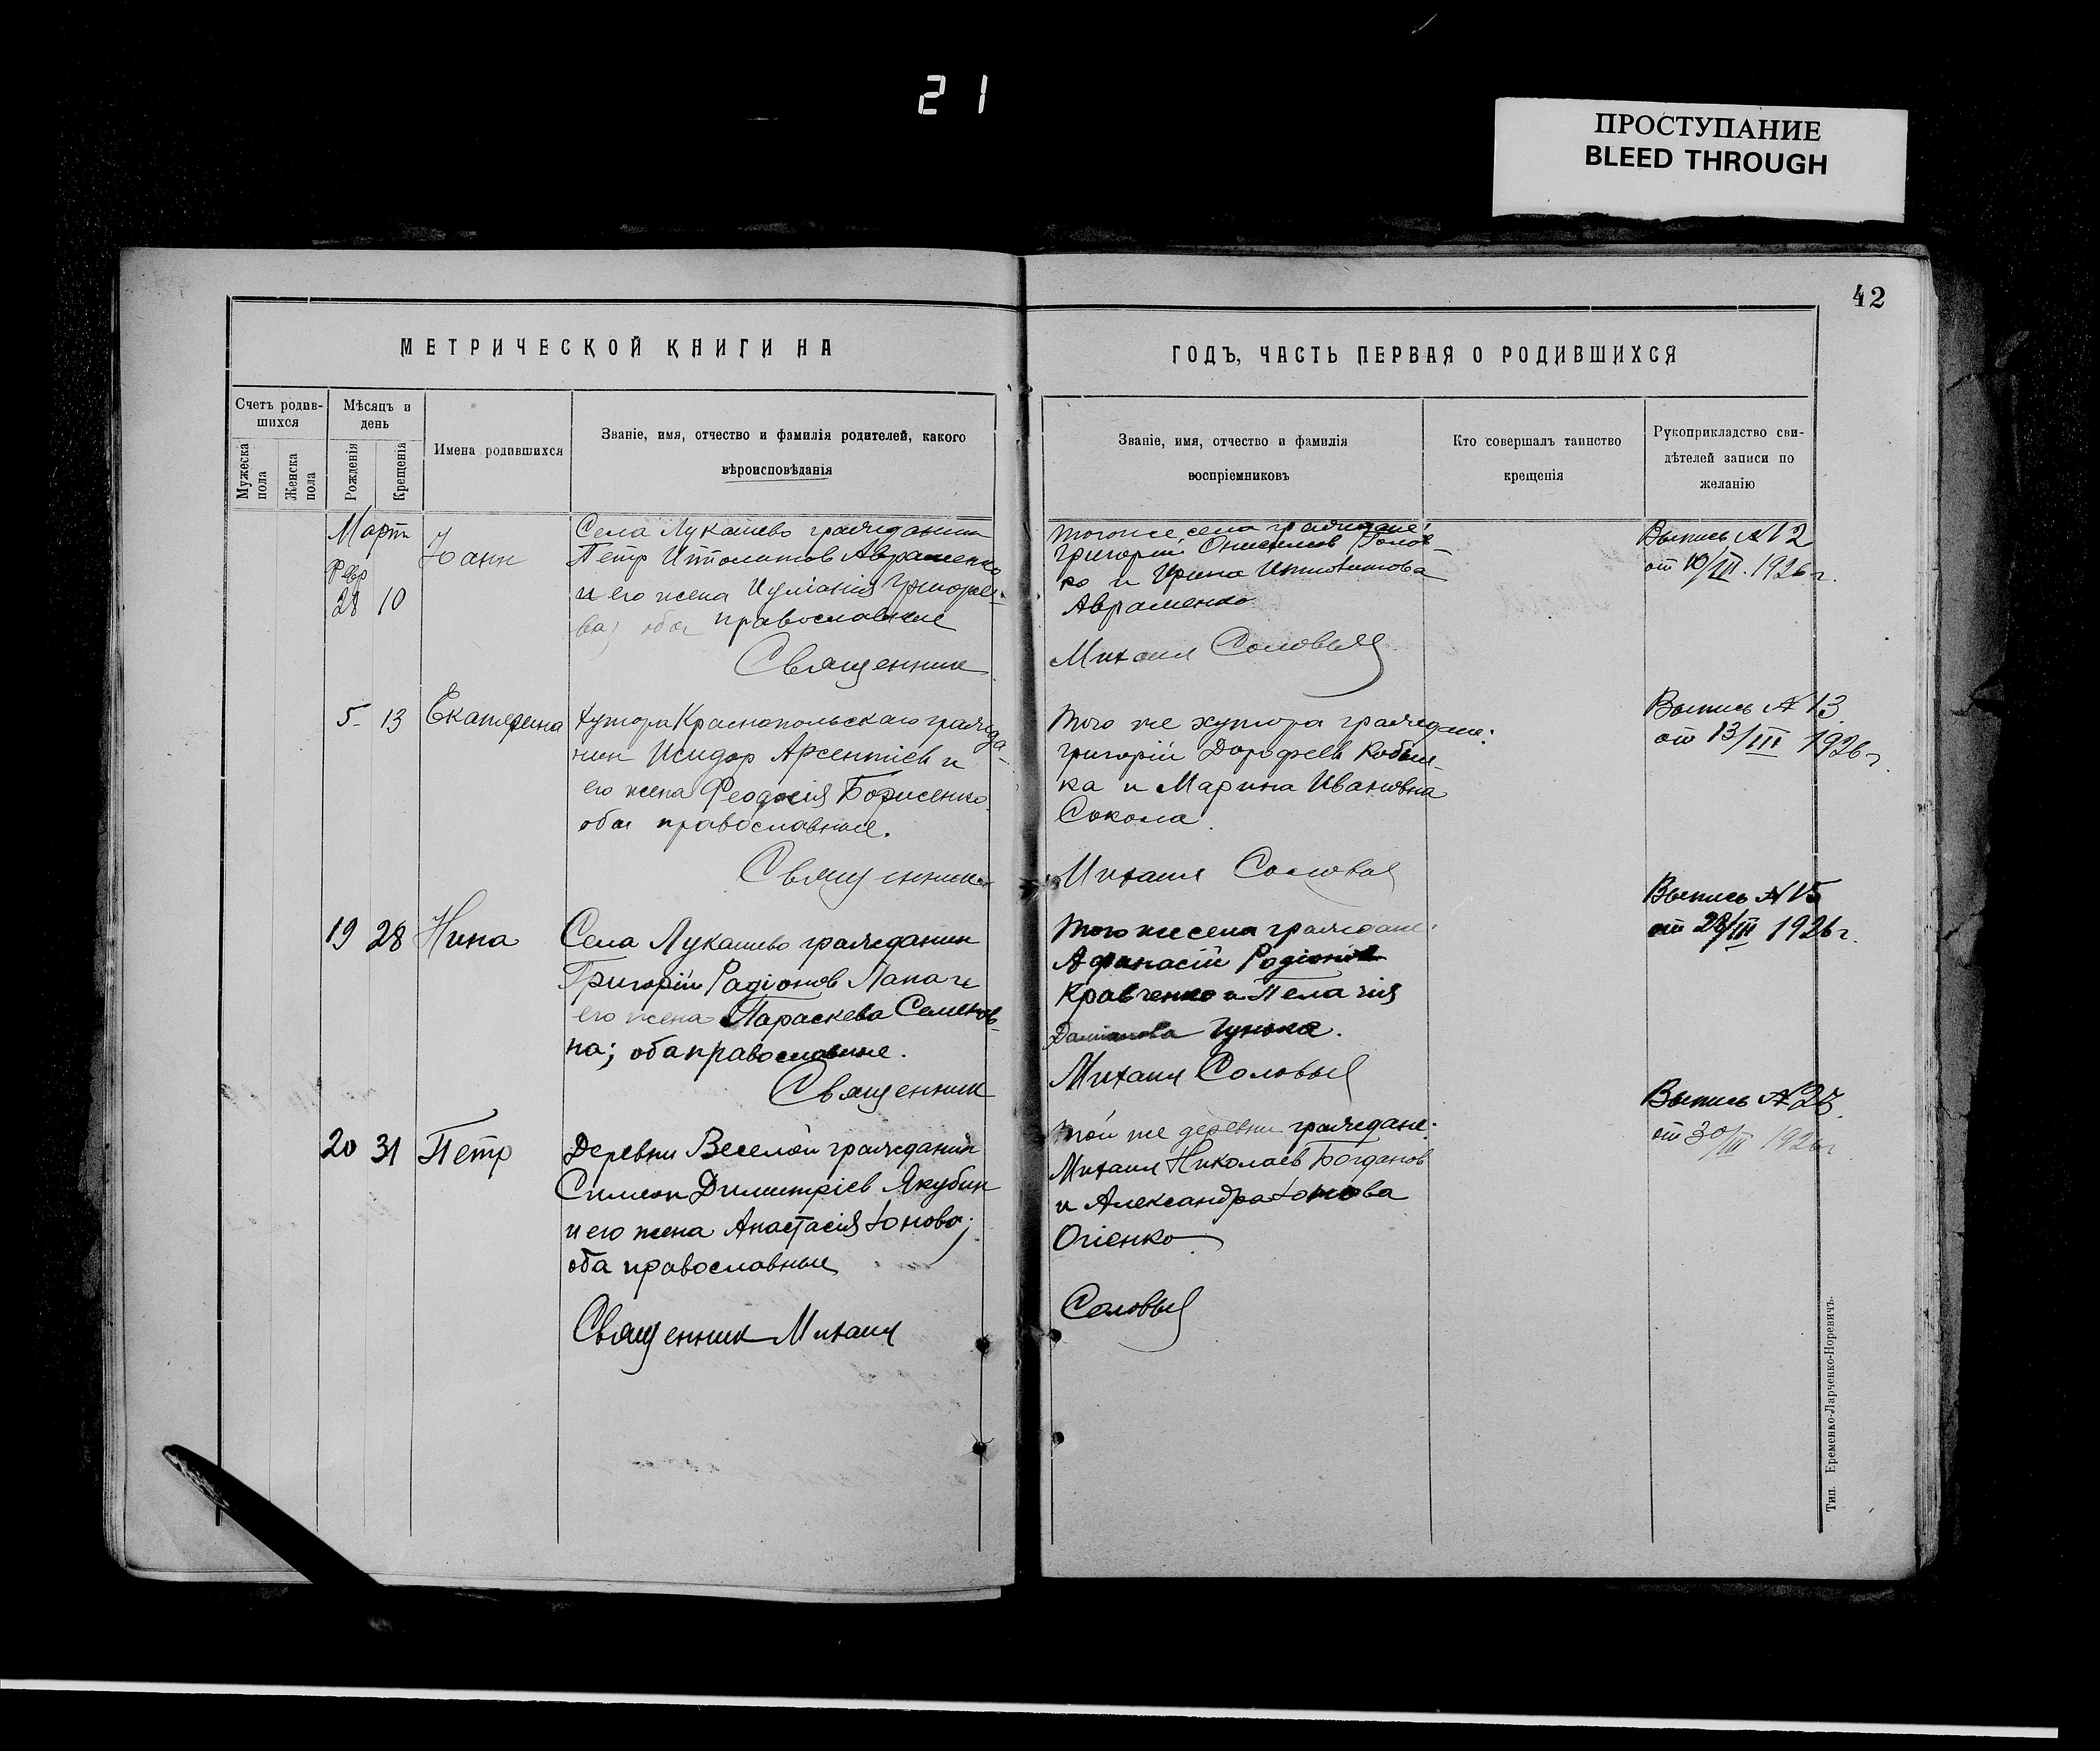 21
ПРОСТУПАНИЕ
BLEED THROUGH
42
МЕТРИЧЕСКОЙ КНИГИ НА
ГОДЪ, ЧАСТЬ ПЕРВАЯ О РОДИВШИХСЯ
Счетъ родив-
шихся
Мужеска
пола
Женска
пола
Мѣсяцъ и
день
Рожденія
Крещенія
Имена родившихся
Званіе, имя, отчество и фамилія родителей, какого
вѣроисповѣданія
Званіе, имя, отчество и фамилія
воспріемниковъ
Кто совершалъ таинство
крещенія
Рукоприкладство сви-
дѣтелей записи по
желанію
Март
Февр
28 10
Іоанн
Села Лукашево гражданин
Петр Ипполитов Авраменко
и его жена Иуліанія Григорье-
ва; оба православные
Священник
Того же села граждане:
Григорий Онисимов Голов-
ко и Ирина Ипполитова
Авраменко
Михаил Соловьей
Выпись № 12
от 10/III. 1926 г.
5 - 13
Екатерина
Хутора Краснопольскаго гражда-
нин Исидор Арсентіев и
его жена Феодосія Борисенко
оба православные.
Священник
Того же хутора граждане:
Григорій Дорофеев Кобыл-
ка и Марина Ивановна
Сокола
Михаил Соловьей
Выпись № 13
от 13/III 1926 г.
19 28
Нина
Села Лукашево гражданин
Григорій Радіонов Лапа и
его жена Параскева Семенов-
на; оба православные.
Священник
Того же села граждане:
Афанасій Родіонов
Кравченко и Пелагія
Даміанова Гунька.
Михаил Соловьей
Выпись № 15
от 28/III 1926 г.
20 31
Петр
Деревни Веселой гражданин
Симеон Димитріев Якубин
и его жена Анастасія Іонова;
оба православные
Священник Михаил
Той же деревни граждане:
Михаил Николаев Богданов
и Александра Іонова
Огіенко
Соловьей
Выпись №
от 30/III 1926 г
Тип. Еременко-Ларченко-Норевичъ.